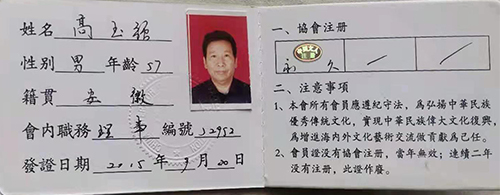 姓名 高玉强
性别 男 年龄 57
籍貫 安徽
會内職務 理事 編號 J2952
發證日期 2015年9月20日
一、協會注册
永久
二、注意事項
1、本會所有會員應遵紀守法，爲弘揚中華民族
優秀傳統文化，實現中華民族偉大文化復興，
爲增進海内外文化藝術交流做貢獻爲己任。
2、會員證没有協會注册，當年無效；連續二年
没有注册，此證作廢。